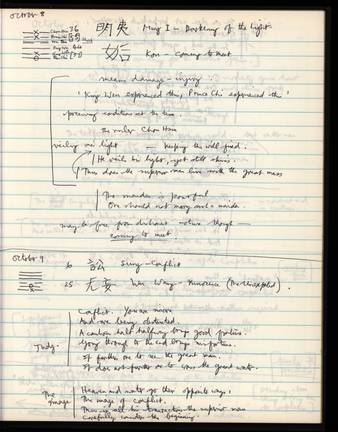 October 8
36
明夷 Ming I - Darkening of the Light
姤 Kou - Coming to Meet
means damage - injury
'King Wen experienced this, Prince Chi experienced this'
the ruler Chou Hsin
veiling one light - keeping the will fixed.
He veils his light, yet still shines.
Thus does the superior man live with the great mass
The maiden is powerful
One should not marry such a maiden.
coming to meet.
October 9.
6 訟 Sung - Conflict
25 无妄 Wu Wang - Innocence (The Unexpected).
Conflict. You are sincere
And are being obstructed.
A cautious halt halfway brings good fortune.
Going through to the end brings misfortune.
It furthers one to see the great man.
It does not further one to cross the great water.
Judg.
The Image
Heaven and water go their opposite ways:
The image of conflict.
Thus in all his transactions the superior man
Carefully considers the beginning.